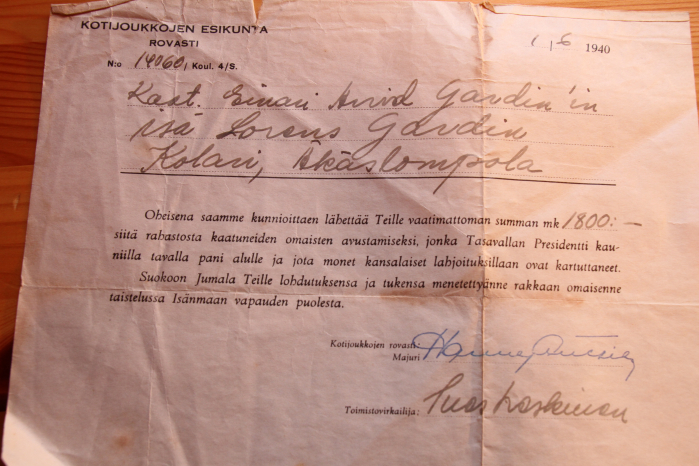 KOTIJOUKKOJEN ESIKUNTA
ROVASTI
N:o 14060 / Koul. 4/S.
1/6 1940
Kaat. Einari Arvid Gardin'in
isä Lorens Gardin
Kolari, Äkäslompola
Oheisena saamme kunnioittaen lähettää Teille vaatimattoman summan mk 1800:—
siitä rahastosta kaatuneiden omaisten avustamiseksi, jonka Tasavallan Presidentti kau-
niilla tavalla pani alulle ja jota monet kansalaiset lahjoituksillaan ovat kartuttaneet.
Suokoon Jumala Teille lohdutuksensa ja tukensa menetettyänne rakkaan omaisenne
taistelussa Isänmaan vapauden puolesta.
Kotijoukkojen rovasti:
Majuri
Toimistovirkailija: Koskinen